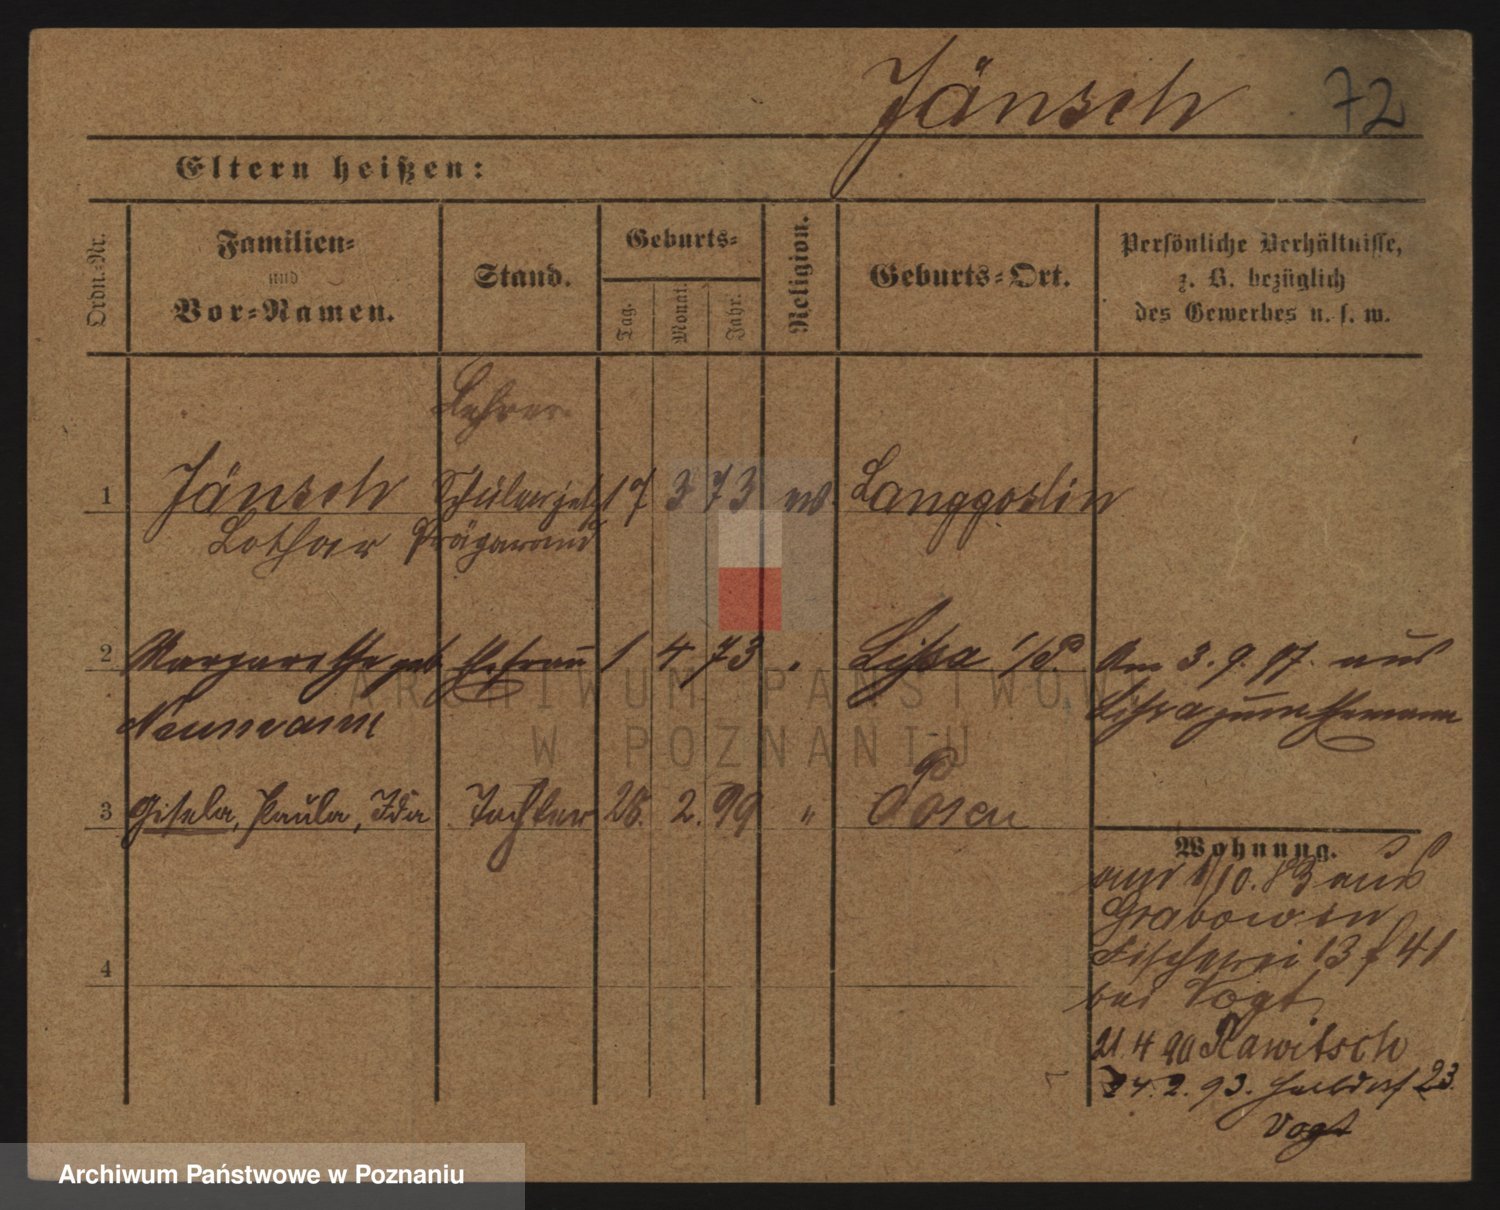 Jänsch 72
Eltern heißen:
Ordn.-Nr.
Familien-
und
Vor-Namen.
Stand.
Geburts-
Tag.
Monat.
Jahr.
Religion.
Geburts-Ort.
Persönliche Verhältnisse,
z. B. bezüglich
des Gewerbes u. s. w.
Lehrer
1 Jänsch Schüler jetzt 17 3 73 ev. Langgoslin
Lothar Präparand
2 Margarethe geb Ehefrau 1 4 73 " Lissa i/P. Am 3. 9. 97. aus
Neumann Lissa zum Ehemann
3 Gisela, Paula, Ida Tochter 28. 2. 99 " Posen
Wohnung.
1/10. 83 aus
Grabowen
Fischerei 13 f 41
bei Vogt
21. 4 90 Rawitsch
24. 2. 93. Halbdorf 23.
Vogt
4
ARCHIWUM PAŃSTWOWE
W POZNANIU
Archiwum Państwowe w Poznaniu